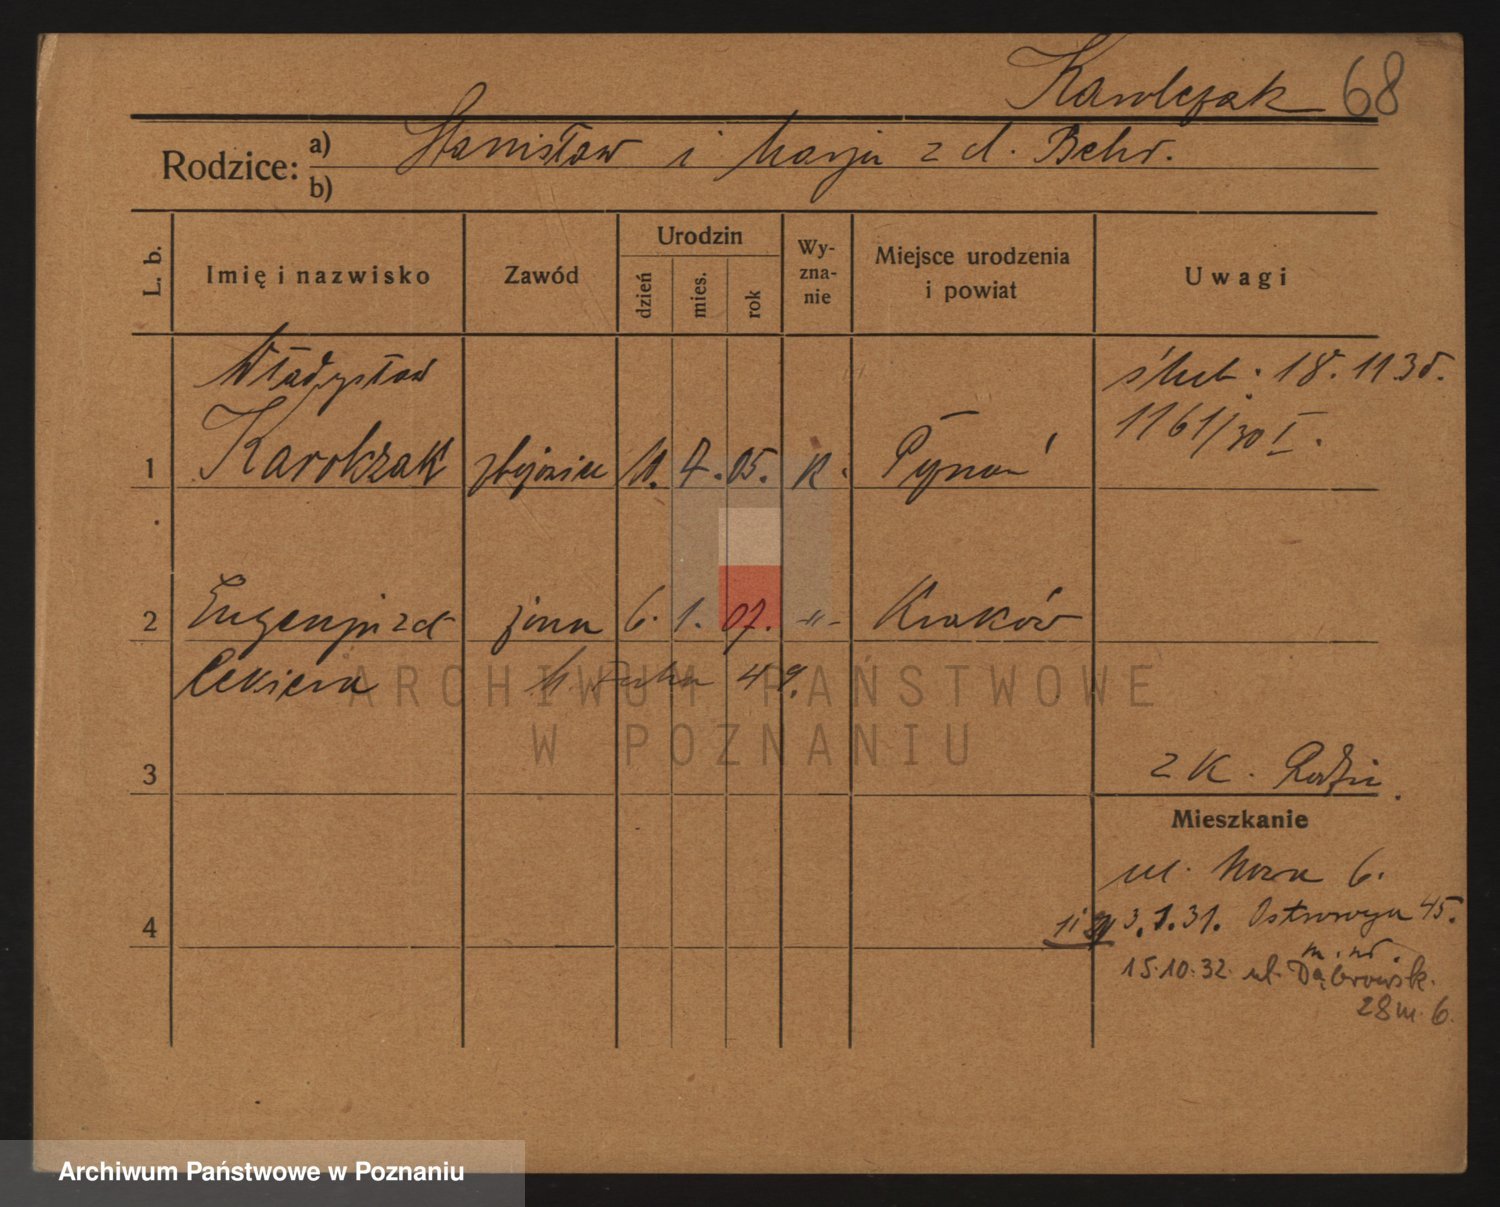 Karolczak 68
Rodzice: a) Stanisław i Marja z d. Behr.
b)
L. b. Imię i nazwisko Zawód Urodzin dzień mies. rok Wy-zna-nie Miejsce urodzenia i powiat Uwagi
Władysław ślub. 18. 11 30.
1161/30 I.
1 Karolczak 11. 7. 05. K.
2 Eugenja z d. żona 6. 1. 07. -"- Kraków
ARCHIWUM PAŃSTWOWE
W POZNANIU
3 z K. Rodzic.
Mieszkanie
ul. 6.
4 3. 1. 31. 45.
15.10.32. ul. Dąbrowsk.
28 m. 6.
Archiwum Państwowe w Poznaniu